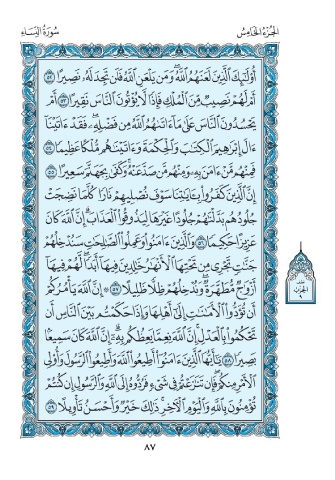 الجزء الخامس
سورة النساء
أُوْلَٰٓئِكَ ٱلَّذِينَ لَعَنَهُمُ ٱللَّهُ وَمَن يَلْعَنِ ٱللَّهُ فَلَن تَجِدَ لَهُۥ نَصِيرًا ٥٢
أَمْ لَهُمْ نَصِيبٌ مِّنَ ٱلْمُلْكِ فَإِذًا لَّا يُؤْتُونَ ٱلنَّاسَ نَقِيرًا ٥٣ أَمْ
يَحْسُدُونَ ٱلنَّاسَ عَلَىٰ مَآ ءَاتَىٰهُمُ ٱللَّهُ مِن فَضْلِهِۦ فَقَدْ ءَاتَيْنَآ
ءَالَ إِبْرَٰهِيمَ ٱلْكِتَٰبَ وَٱلْحِكْمَةَ وَءَاتَيْنَٰهُم مُّلْكًا عَظِيمًا ٥٤
فَمِنْهُم مَّنْ ءَامَنَ بِهِۦ وَمِنْهُم مَّن صَدَّ عَنْهُ وَكَفَىٰ بِجَهَنَّمَ سَعِيرًا ٥٥
إِنَّ ٱلَّذِينَ كَفَرُواْ بِـَٔايَٰتِنَا سَوْفَ نُصْلِيهِمْ نَارًا كُلَّمَا نَضِجَتْ
جُلُودُهُم بَدَّلْنَٰهُمْ جُلُودًا غَيْرَهَا لِيَذُوقُواْ ٱلْعَذَابَ إِنَّ ٱللَّهَ كَانَ
عَزِيزًا حَكِيمًا ٥٦ وَٱلَّذِينَ ءَامَنُواْ وَعَمِلُواْ ٱلصَّٰلِحَٰتِ سَنُدْخِلُهُمْ
جَنَّٰتٍ تَجْرِى مِن تَحْتِهَا ٱلْأَنْهَٰرُ خَٰلِدِينَ فِيهَآ أَبَدًا لَّهُمْ فِيهَآ
أَزْوَٰجٌ مُّطَهَّرَةٌ وَنُدْخِلُهُمْ ظِلًّا ظَلِيلًا ٥٧ ۞ إِنَّ ٱللَّهَ يَأْمُرُكُمْ
أَن تُؤَدُّواْ ٱلْأَمَٰنَٰتِ إِلَىٰٓ أَهْلِهَا وَإِذَا حَكَمْتُم بَيْنَ ٱلنَّاسِ أَن
تَحْكُمُواْ بِٱلْعَدْلِ إِنَّ ٱللَّهَ نِعِمَّا يَعِظُكُم بِهِۦٓ إِنَّ ٱللَّهَ كَانَ سَمِيعًۢا
بَصِيرًا ٥٨ يَٰٓأَيُّهَا ٱلَّذِينَ ءَامَنُوٓاْ أَطِيعُواْ ٱللَّهَ وَأَطِيعُواْ ٱلرَّسُولَ وَأُوْلِى
ٱلْأَمْرِ مِنكُمْ فَإِن تَنَٰزَعْتُمْ فِى شَىْءٍ فَرُدُّوهُ إِلَى ٱللَّهِ وَٱلرَّسُولِ إِن كُنتُمْ
تُؤْمِنُونَ بِٱللَّهِ وَٱلْيَوْمِ ٱلْءَاخِرِ ذَٰلِكَ خَيْرٌ وَأَحْسَنُ تَأْوِيلًا ٥٩
الحزب
٩
٨٧